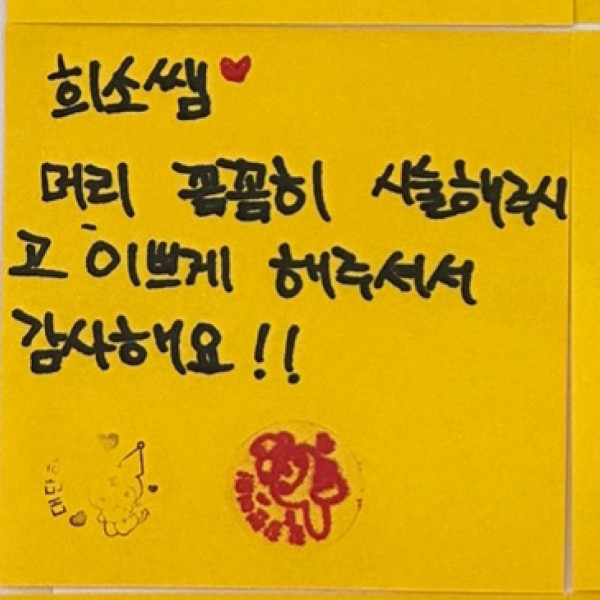 희소쌤
머리 꼼꼼히 시술해주시
고 이쁘게 해주서서
감사해요!!